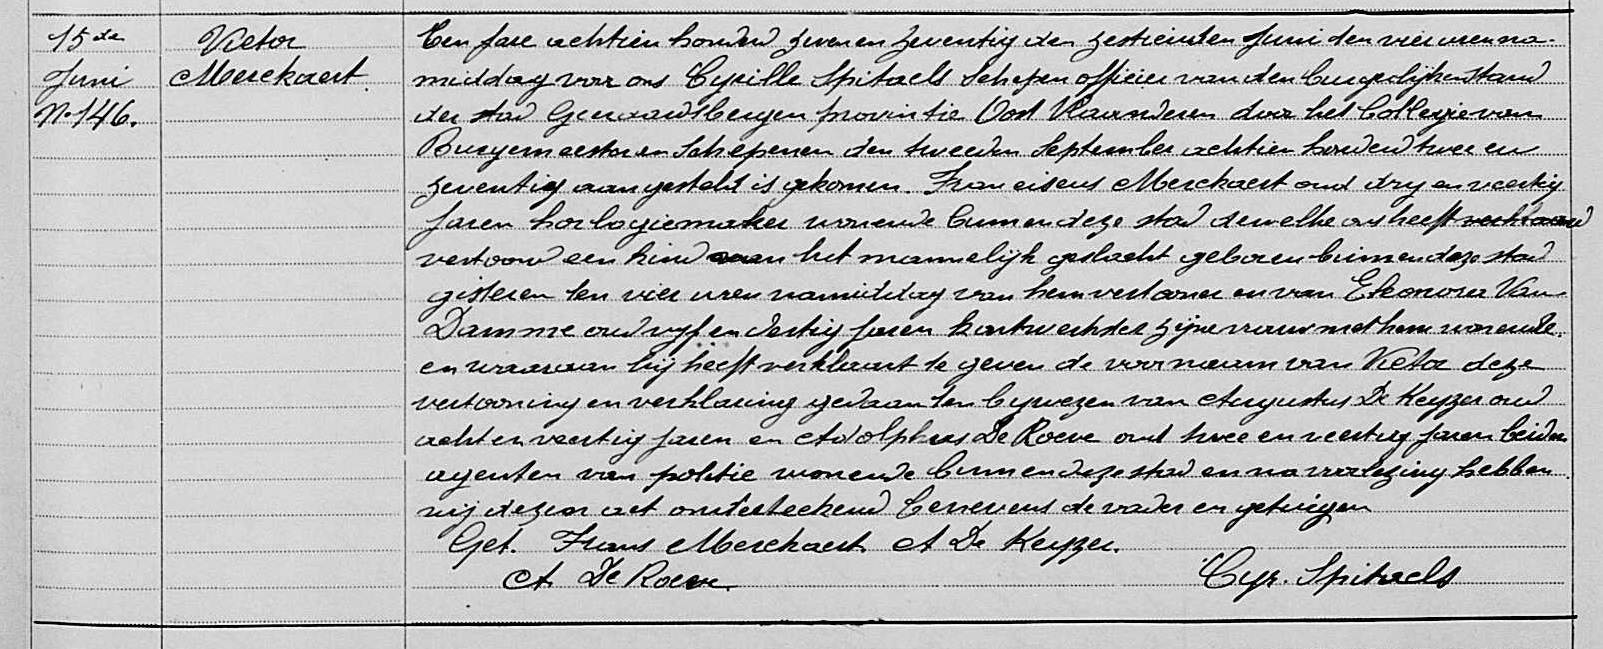 15de
Juni
No. 146.
Victor
Merckaert
Een jare achtien honderd zeven en zeventig den zestienden Juni den vier uren na-
middag voor ons Cyrille Spitaels Schepen officier van den burgerlijken stand
der stad Geeraardsbergen provintie Oost Vlaanderen door het Collegie van
Burgemeester en Schepenen den tweeden September achtien honderd twee en
zeventig aangesteld is gekomen Franciscus Merckaert oud dry en veertig
jaren horlogiemaker wonende binnen deze stad dewelke ons heeft verklaard
vertoond een kind van het mannelijk geslacht geboren binnen deze stad
gisteren ten vier uren namiddag van hem vertooner en van Eleonora Van
Damme oud vyf en dertig jaren kantwerkster zijne vrouw met hem wonende
en waaraan hij heeft verklaart te geven de voornaam van Victor deze
vertooning en verklaring gedaan ten bywezen van Augustus De Keyzer oud
acht en veertig jaren en Adolphus De Roeve oud twee en veertig jaren beiden
agenten van politie wonende binnen deze stad en na voorlezing hebben
wij dezen act onderteekend benevens de vader en getuigen
Get. Frans Merckaert A De Keyzer.
A De Roeve.
Cyr. Spitaels